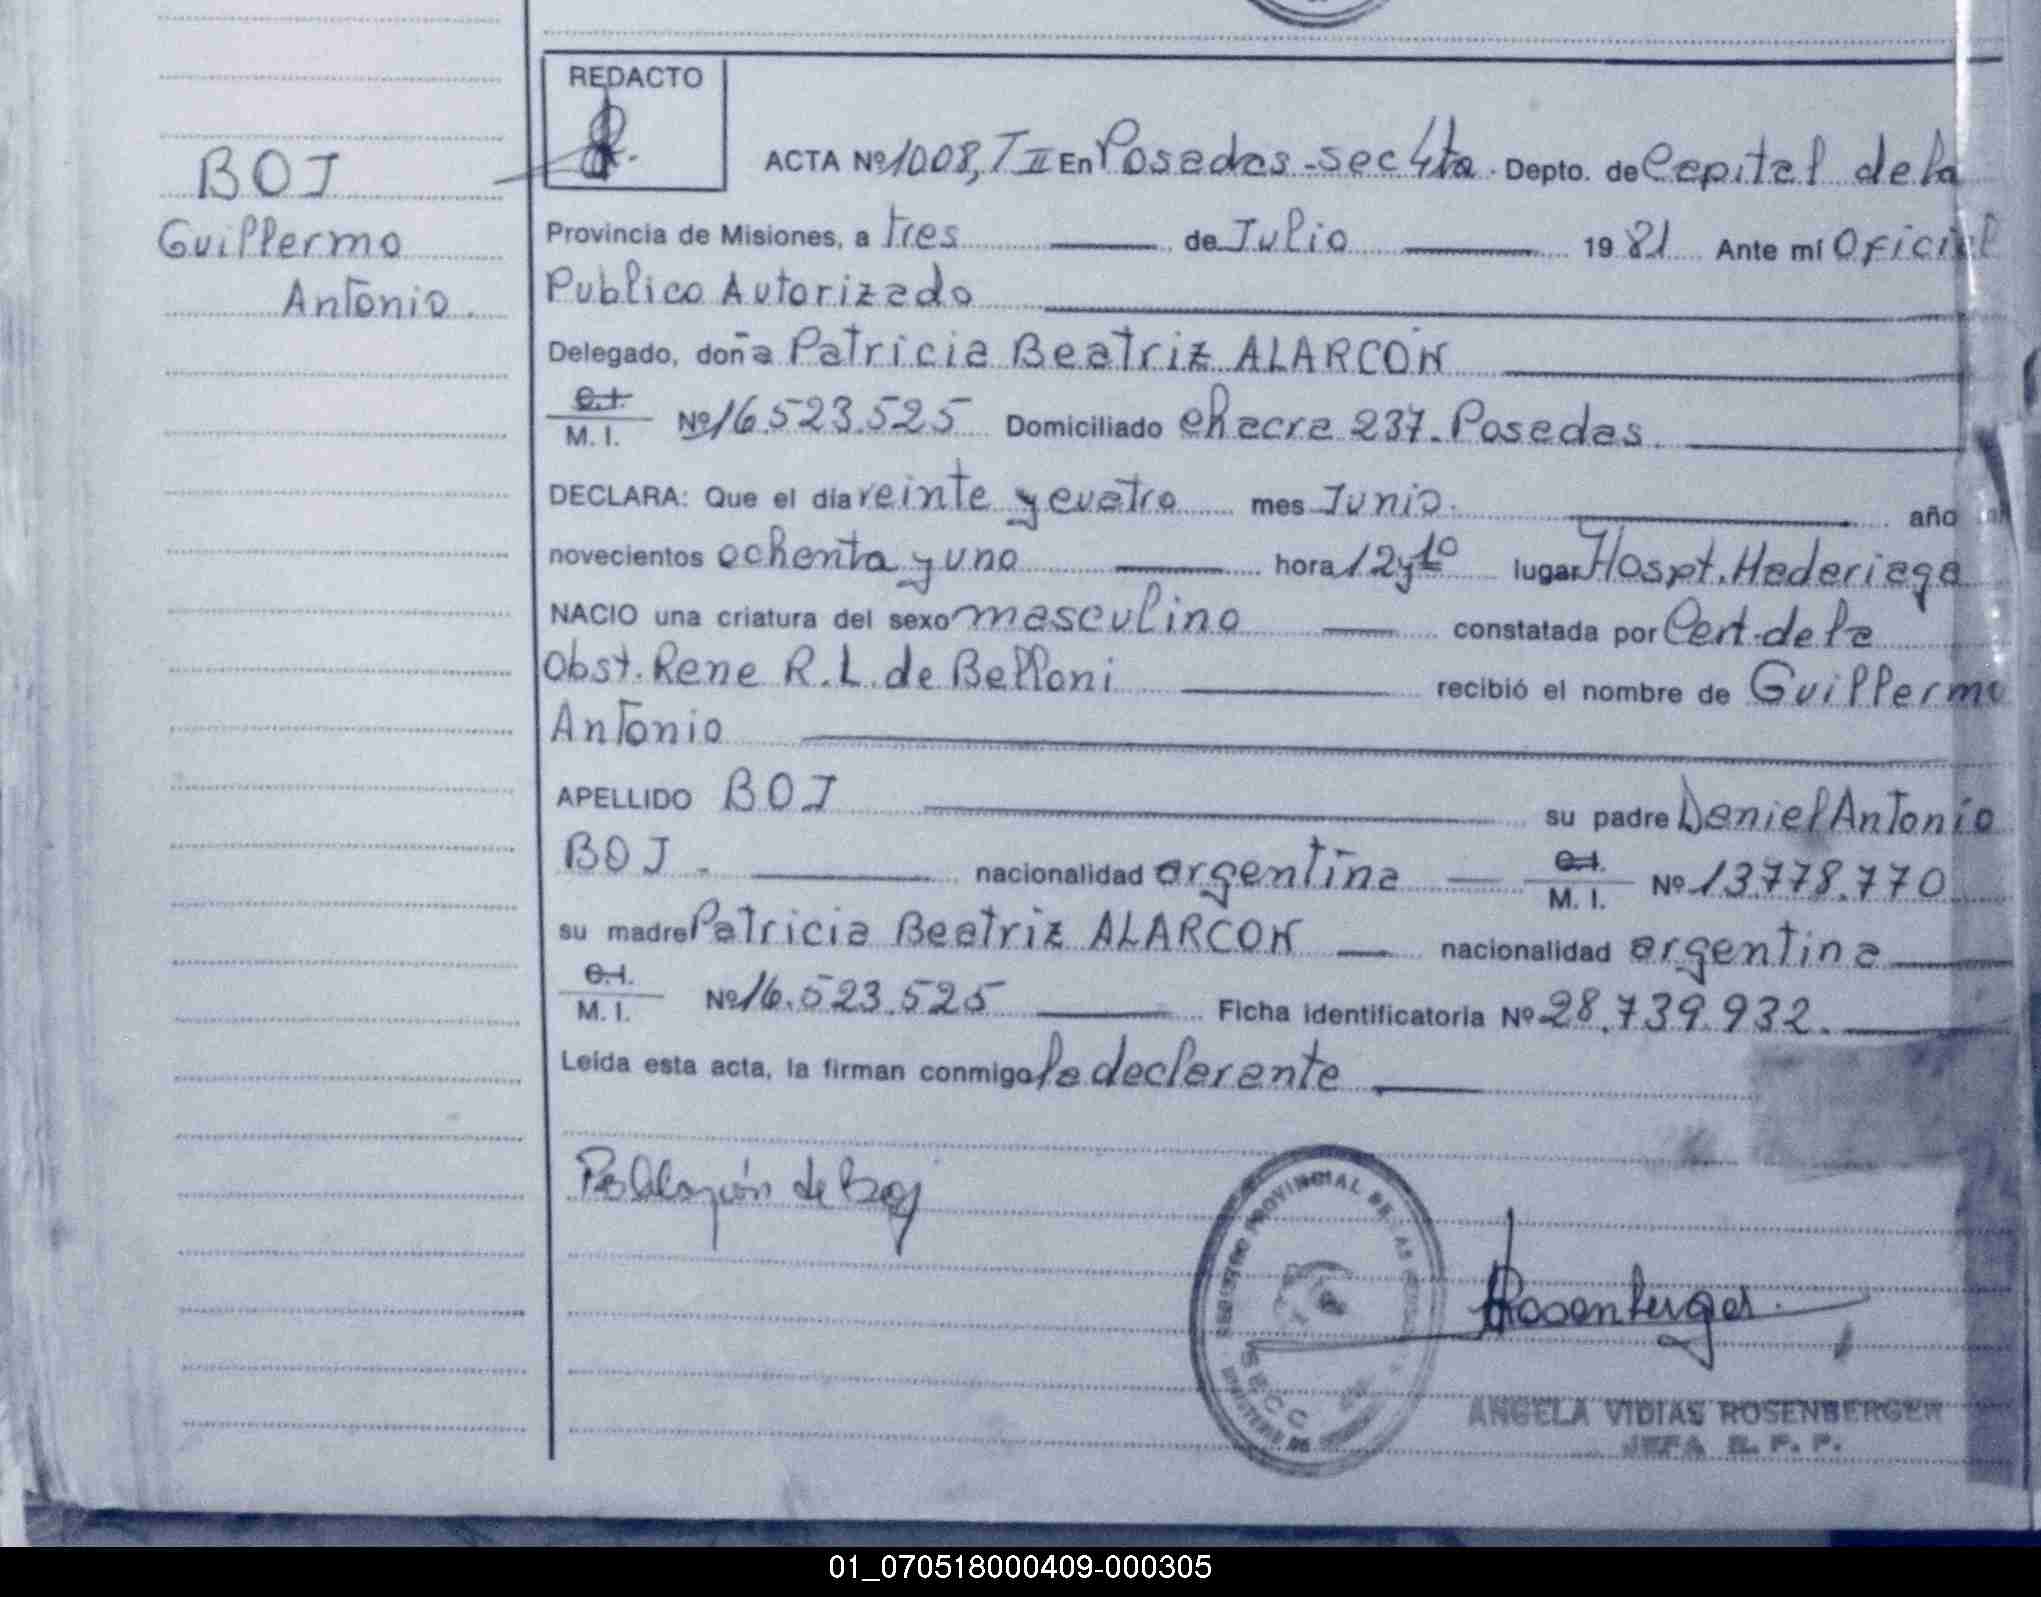 REDACTO
BOJ
Guillermo
Antonio.
ACTA Nº 1008, T II En Posadas - sec 4ta. Depto. de Capital de la
Provincia de Misiones, a tres de Julio 19 81 Ante mí Oficial
Publico Autorizado
Delegado, doña Patricia Beatriz ALARCON
C.I.
M. I. Nº 16.523.525 Domiciliado chacra 237. Posadas.
DECLARA: Que el día veinte y cuatro mes Junio. año
novecientos ochenta y uno hora 12 y 10 lugar Hospt. Madariaga
NACIO una criatura del sexo masculino constatada por Cert. de la
Obst. Rene R. L. de Belloni recibió el nombre de Guillermo
Antonio
APELLIDO BOJ su padre Daniel Antonio
BOJ. nacionalidad argentina C.I. M. I. Nº 13.778.770
su madre Patricia Beatriz ALARCON nacionalidad argentina
C.I.
M. I. Nº 16.523.525 Ficha identificatoria Nº 28.739.932.
Leída esta acta, la firman conmigo la declarante
de Boj
REGISTRO PROVINCIAL DE LAS
Rosenberger
ANGELA VIDIAS ROSENBERGER
JEFA R. P. P.
01_070518000409-000305